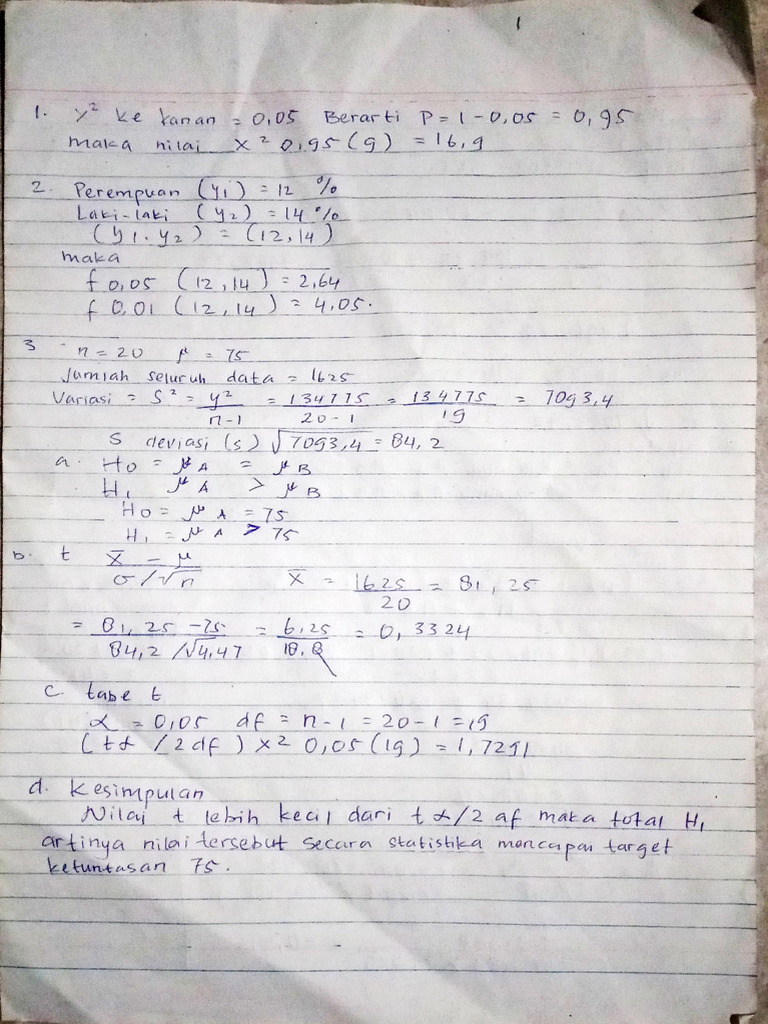 1
1. χ² ke kanan = 0,05 Berarti P = 1 - 0,05 = 0,95
maka nilai X² 0,95 (9) = 16,9
2. Perempuan (y1) = 12 %
Laki-laki (y2) = 14 %
(y1. y2) = (12, 14)
maka
f 0,05 (12, 14) = 2,64
f 0,01 (12, 14) = 4,05.
3 n = 20 μ = 75
Jumlah seluruh data = 1625
Variasi = S² = y²/n-1 = 134775/20-1 = 134775/19 = 7093,4
S deviasi (s) √7093,4 = 84,2
a. Ho = μA = μB
H1 μA > μB
Ho = μA = 75
H1 = μA > 75
b. t x̄ - μ / σ/√n x̄ = 1625/20 = 81,25
= 81,25 - 75 / 84,2/√4,47 = 6,25/18,8 = 0,3324
c. tabe t
α = 0,05 df = n-1 = 20-1 = 19
(tα /2 df) X² 0,05 (19) = 1,7291
d. Kesimpulan
Nilai t lebih kecil dari t α/2 df maka total H1
artinya nilai tersebut secara statistika mencapai target
ketuntasan 75.